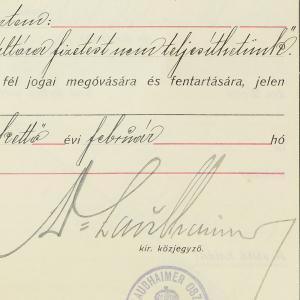 etem:
últára fizetést nem teljesíthetünk".
fél jogai megóvására és fentartására, jelen
kettő évi február hó
Dr Laubhaimer
kir. közjegyző.
AUBHAIMER OSZ